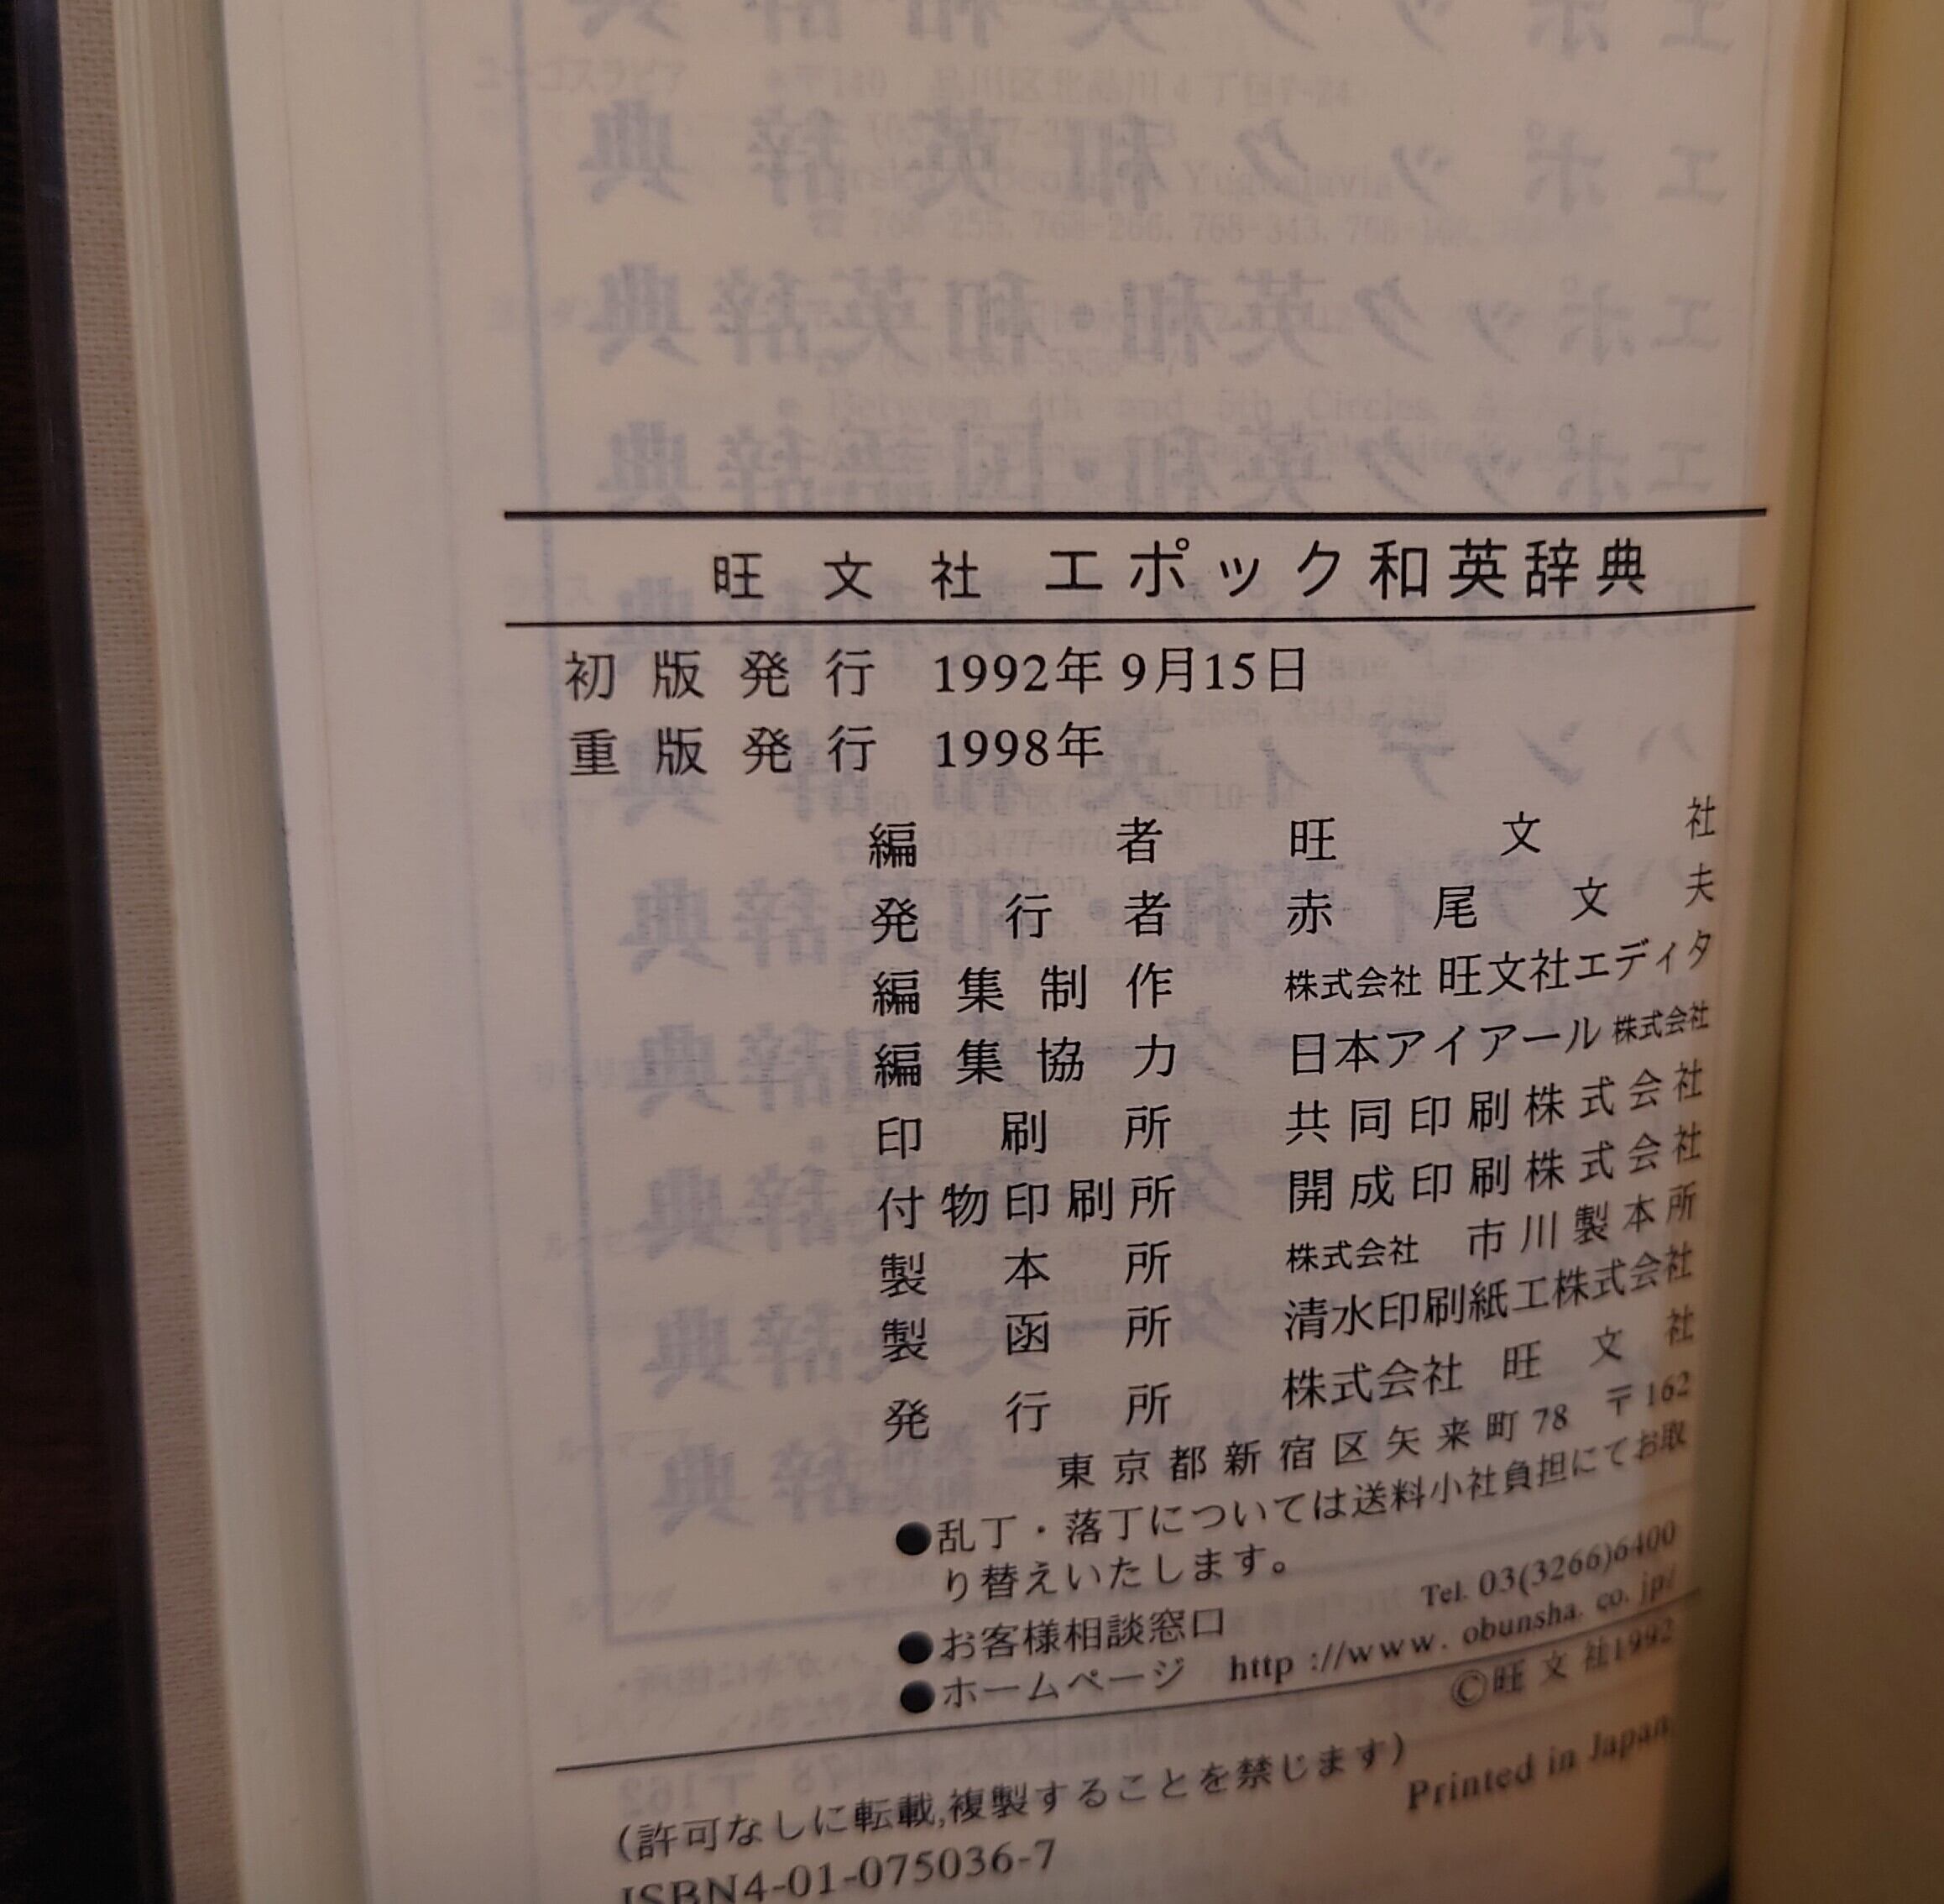 旺文社 エポック和英辞典
初版発行 1992年9月15日
重版発行 1998年
編者 旺文社
発行者 赤尾文夫
編集制作 株式会社 旺文社エディタ
編集協力 日本アイアール 株式会社
印刷所 共同印刷株式会社
付物印刷所 開成印刷株式会社
製本所 株式会社 市川製本所
製函所 清水印刷紙工株式会社
発行所 株式会社 旺文社
東京都新宿区矢来町78 〒162
●乱丁・落丁については送料小社負担にてお取
り替えいたします。
●お客様相談窓口 Tel. 03(3266)6400
●ホームページ http://www.obunsha.co.jp/
©旺文社1992
(許可なしに転載,複製することを禁じます) Printed in Japan
ISBN4-01-075036-7